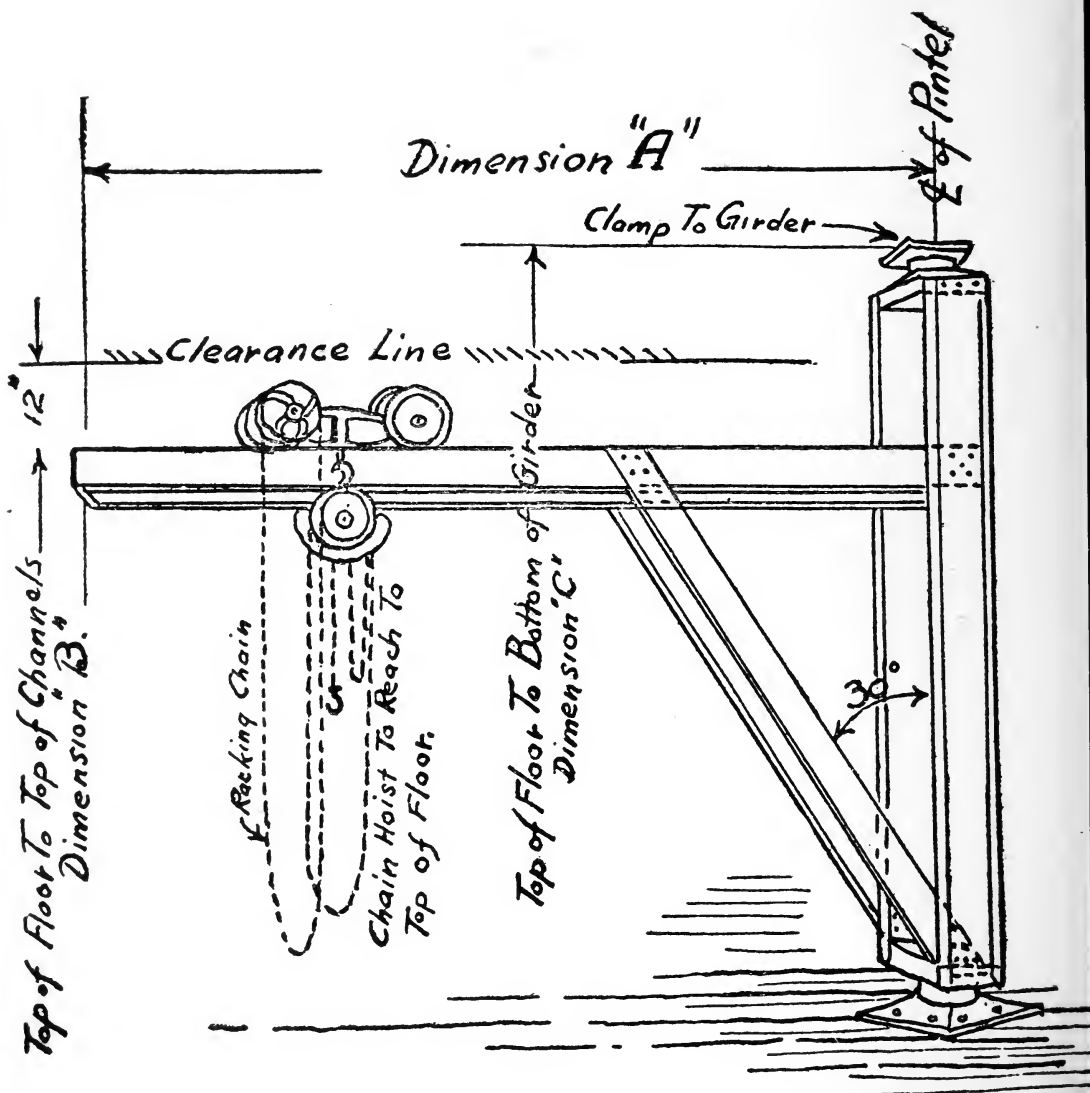 Dimension "A"
℄ of Pintel
Clamp To Girder
Clearance Line
12"
Top of Floor To Top of Channels
Dimension "B."
Racking Chain
Chain Hoist To Reach To
Top of Floor.
Top of Floor To Bottom of Girder
Dimension "C"
30°